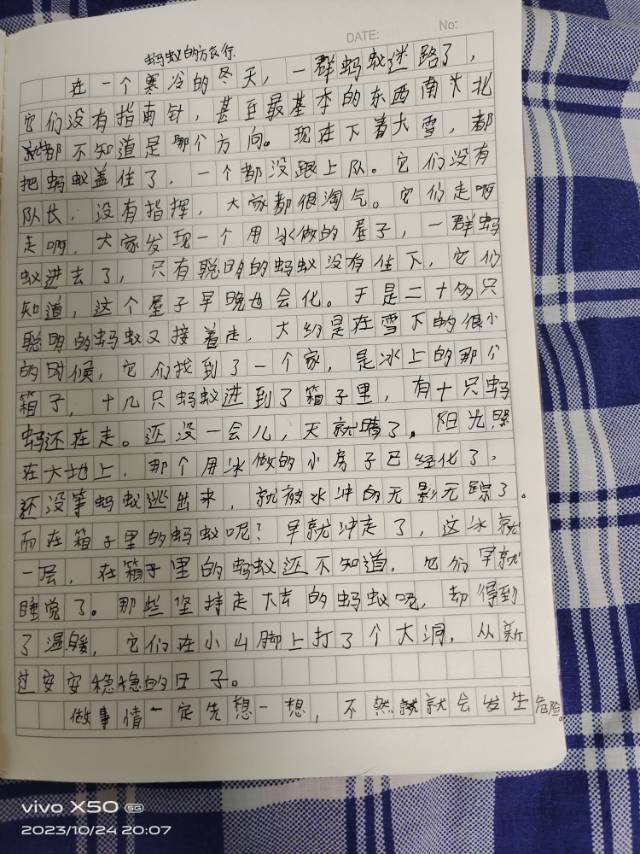 DATE:
No:
蚂蚁的旅行
在一个寒冷的冬天，一群蚂蚁迷路了，
它们没有指南针，甚至最基本的东西南北
都不知道是哪个方向。现在下着大雪，都
把蚂蚁盖住了，一个都没跟上队。它们没有
队长，没有指挥，大家都很淘气。它们走啊
走啊，大家发现一个用冰做的屋子，一群蚂
蚁进去了，只有聪明的蚂蚁没有住下，它们
知道，这个屋子早晚也会化。于是二十多只
聪明的蚂蚁又接着走，大约是在雪下的很小
的时候，它们找到了一个家，是冰上的那个
箱子，十几只蚂蚁进到了箱子里，有十只蚂
蚂还在走。还没一会儿，天就晴了，阳光照
在大地上，那个用冰做的小房子已经化了，
还没等蚂蚁逃出来，就被水冲的无影无踪了。
而在箱子里的蚂蚁呢？早就冲走了，这冰就
一层，在箱子里的蚂蚁还不知道，它们早就
睡觉了。那些坚持走大去的蚂蚁呢，却得到
了温暖，它们在小山脚上打了个大洞，从新
过安安稳稳的日子。
做事情一定先想一想，不然就会发生危险。
vivo X50 5G
2023/10/24 20:07